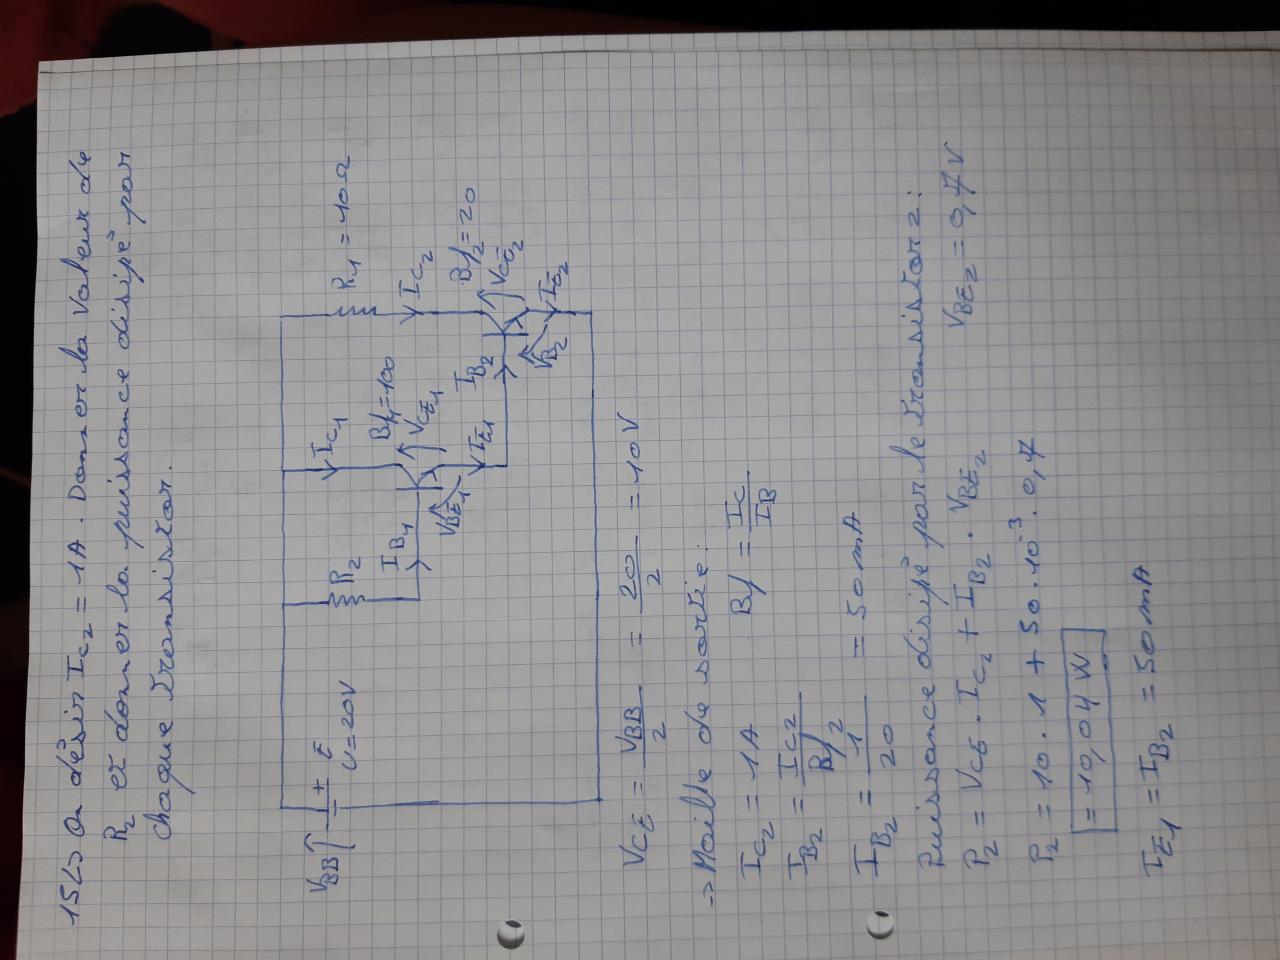 15L> On désir Ic2 = 1A. Donner la Valeur de
R2 et donner la puissance disipé par
chaque transistor.
VBB
+
E
U=20V
R2
IB1
VBE1
IC1
Bf1=100
VCE1
IE1
IB2
R1 = 10Ω
IC2
Bf2=20
VCE2
VB2
IE2
VCE = VBB/2 = 20/2 = 10V
-> Maille de sortie:
IC2 = 1A Bf = IC/IB
IB2 = IC2/Bf2
IB2 = 1/20 = 50mA
Puissance disipé par le transistor 2:
P2 = VCE . IC2 + IB2 . VBE2 VBE2 = 0,7V
P2 = 10 . 1 + 50.10-3 . 0,7
= 10,04 W
IE1 = IB2 = 50mA